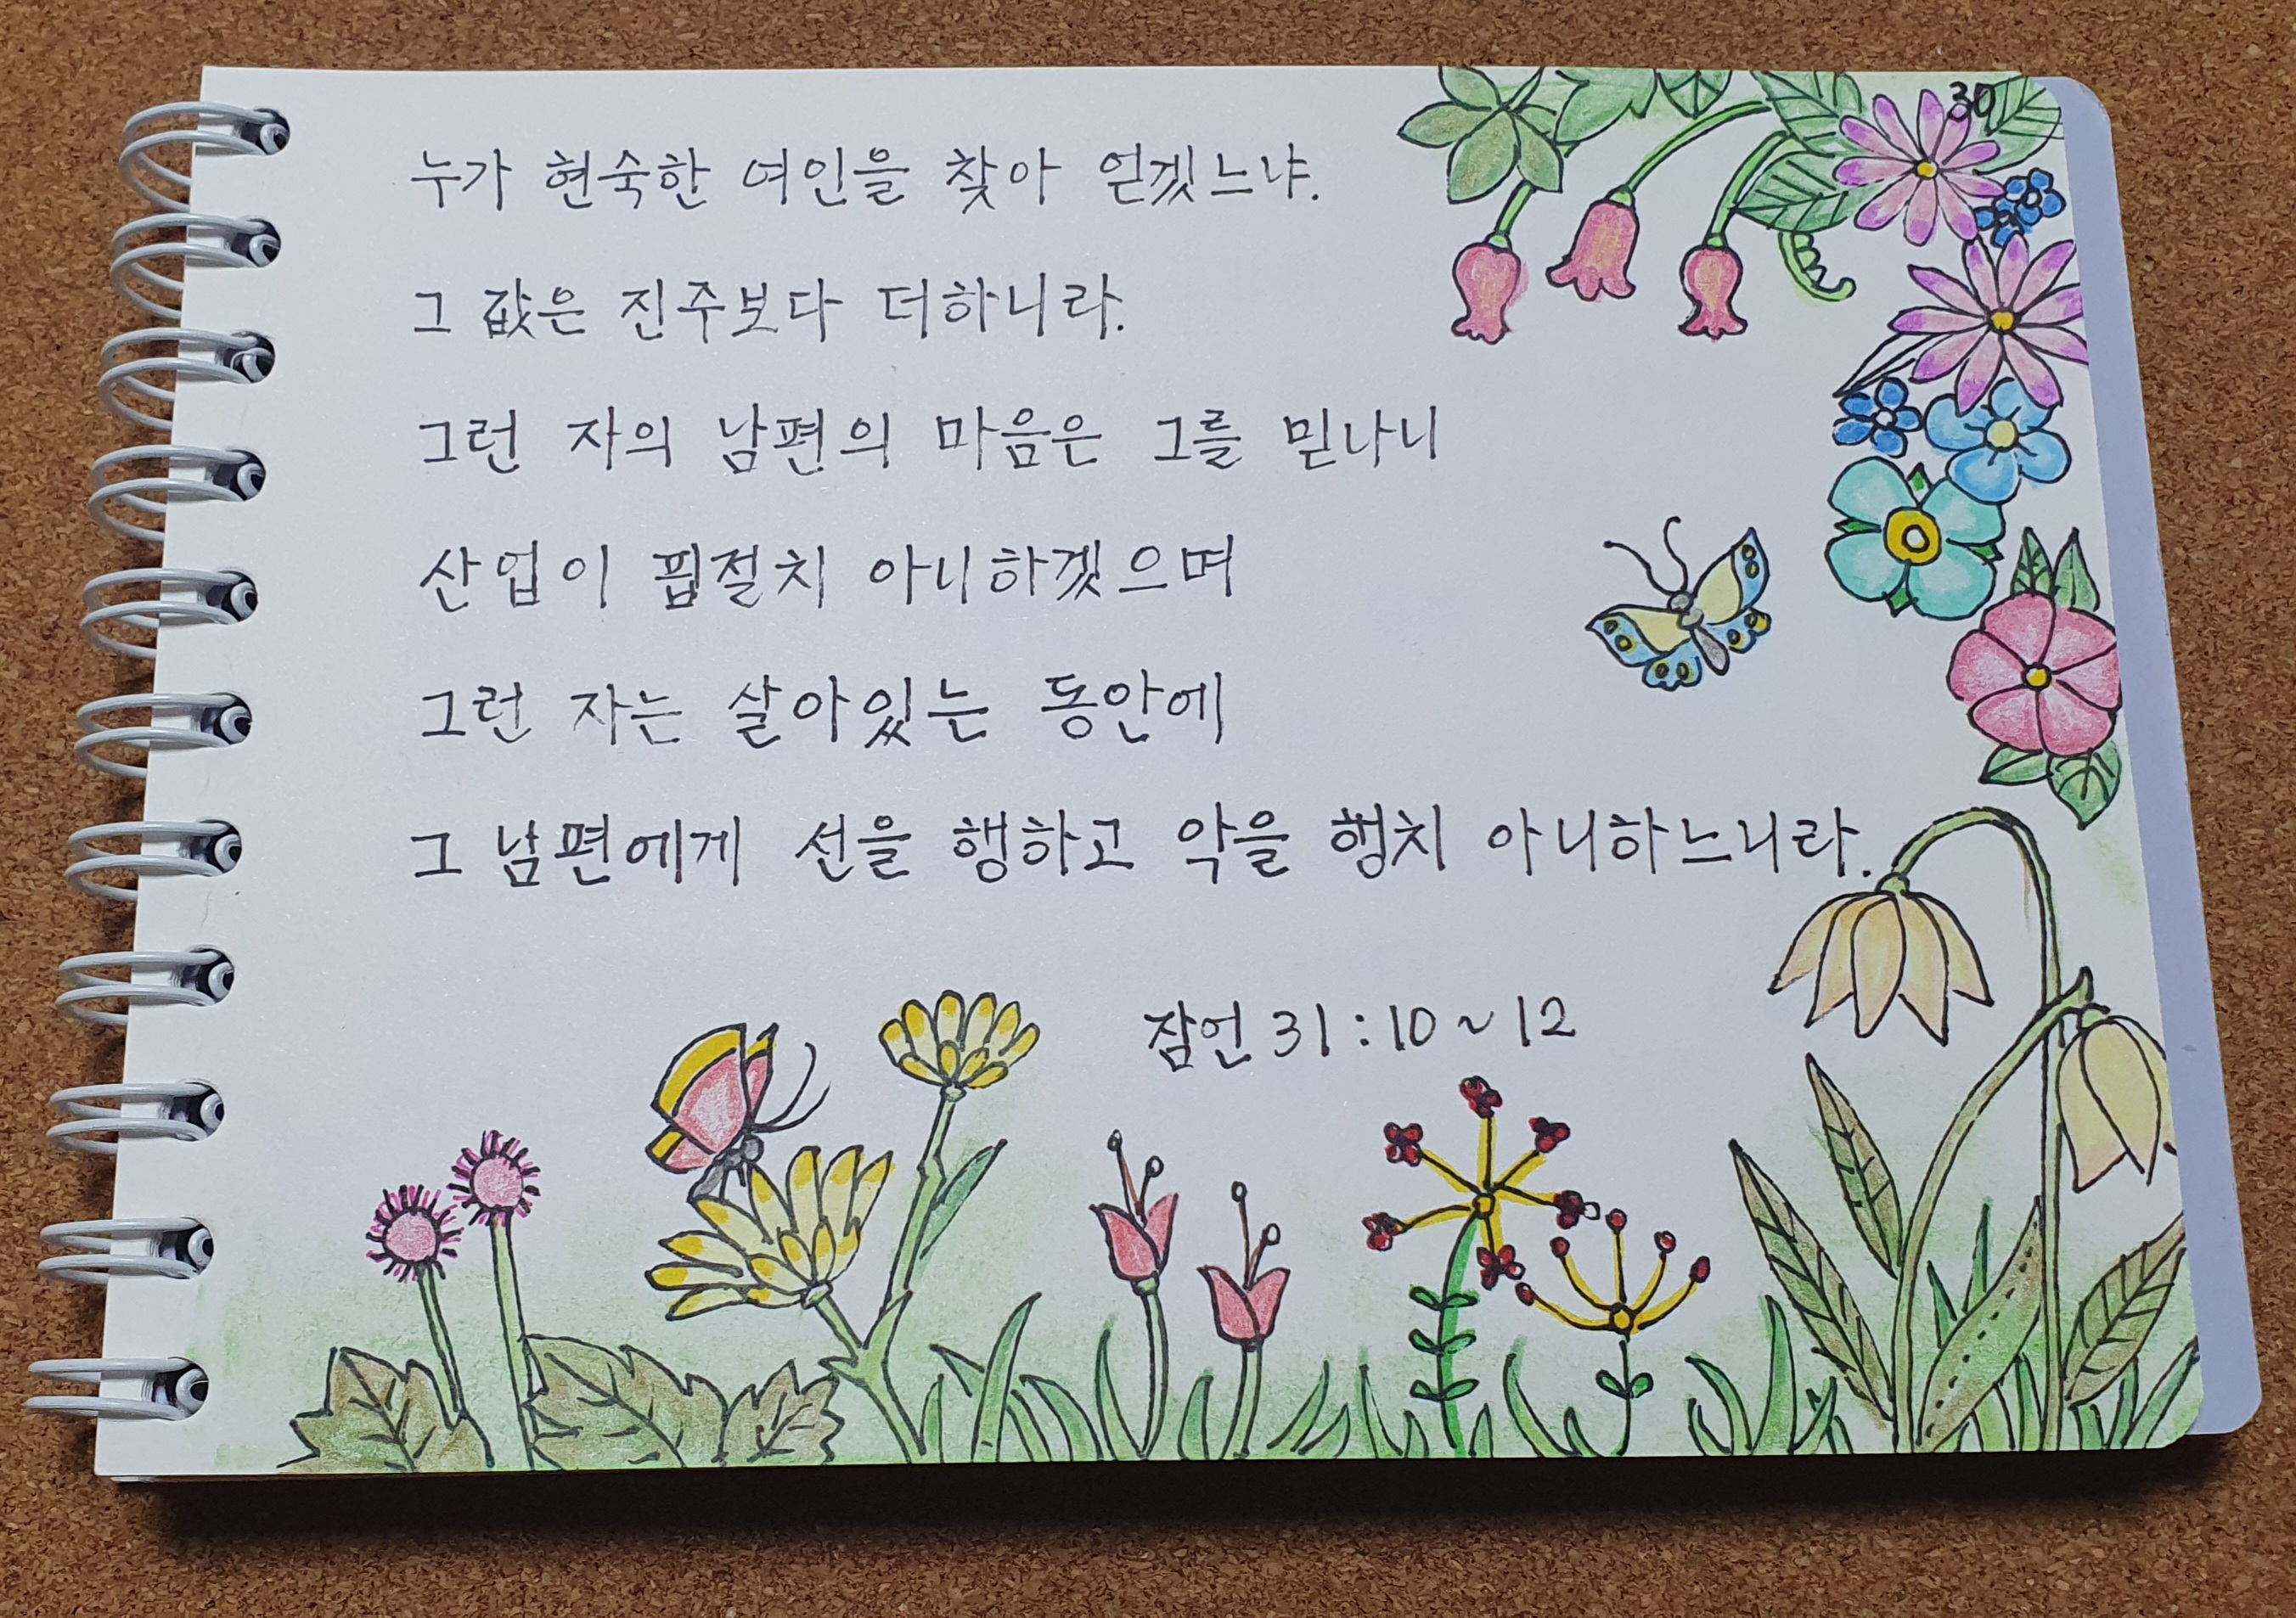 30
누가 현숙한 여인을 찾아 얻겠느냐.
그 값은 진주보다 더하니라.
그런 자의 남편의 마음은 그를 믿나니
산업이 핍절치 아니하겠으며
그런 자는 살아있는 동안에
그 남편에게 선을 행하고 악을 행치 아니하느니라.
잠언 31:10~12